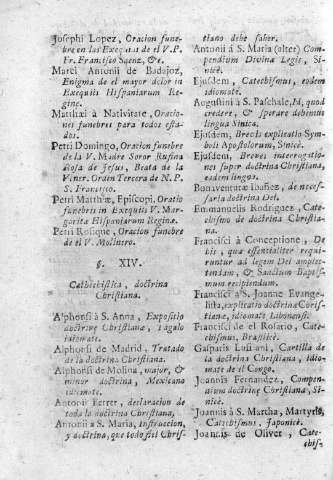 Josephi Lopez, Oracion fune-
bre en las Exequias de el V. P.
Fr. Francisco Saenz, &c.
Marci Antonii de Badajoz,
Enigma de el mayor dolor in
Exequiis Hispaniarum Re-
ginæ.
Matthæi à Nativitate, Oracio-
nes funebres para todos esta-
dos.
Petri Domingo, Oracion funebre
de la V. Madre Soror Rufina
Roja de Jesus, Beata de la
Vener. Orden Tercera de N. P.
S. Francisco.
Petri Matthæi, Episcopi, Oratio
funebris in Exequiis V. Mar-
garitæ Hispaniarum Reginæ.
Petri Rosique, Oracion funebre
de el V. Molinero.
§. XIV.
Cathechistica, doctrina
Christiana.
Alphonsi à S. Anna, Expositio
doctrinæ Christianæ, Tagalo
idiomate.
Alphonsi de Madrid, Tratado
de la doctrina Christiana.
Alphonsi de Molina, major, &
minor doctrina, Mexicano
idiomate.
Antonii Ferrer, declaracion de
toda la doctrina Christiana,
Antonii à S. Maria, instruccion,
y doctrina, que todo fiel Chris-
tiano debe saber.
Antonii à S. Maria (alter) Com-
pendium Divinæ Legis, Si-
nicè.
Ejusdem, Catechismus, eodem
idiomate.
Augustini à S. Paschale, M, quod
credere, & sperare debemus
lingua Sinica.
Ejusdem, Brevis explicatio Sym-
boli Apostolorum, Sinicè.
Ejusdem, Breves interrogatio-
nes super doctrina Christiana,
eadem lingua.
Bonaventuræ Ibañez, de neces-
saria doctrina Dei.
Emmanuelis Rodriguez, Cate-
chismo de doctrina Christia-
na.
Francisci à Conceptione, De
his, quæ essentialiter requi-
runtur ad legem Dei amplec-
tendam, & Sanctum Baptis-
mum recipiendum.
Francisci à S. Joanne Evange-
lista, explicatio doctrinæ Chris-
tianæ, idiomate Lisbonensi.
Francisci de el Rosario, Cate-
chismus, Brasilicè.
Gasparis Lusitani, Cartilla de
la doctrina Christiana, idio-
mate de el Congo.
Joannis Fernandez, Compen-
dium doctrinæ Christianæ, Si-
nicè.
Joannis à S. Martha, Martyris,
Catechismus, Japonicè.
Joannis de Oliver, Cate-
chis-